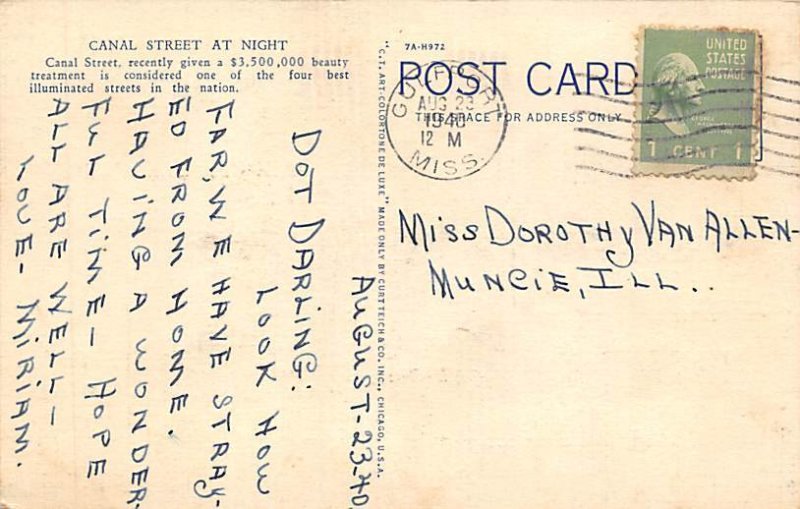 CANAL STREET AT NIGHT
Canal Street, recently given a $3,500,000 beauty
treatment is considered one of the four best
illuminated streets in the nation.
AUGUST-23-40.
DOT DARLING:
LOOK HOW
FAR, WE HAVE STRAY-
ED FROM HOME.
HAVING A WONDER-
FUL TIME - HOPE
ALL ARE WELL -
LOVE - MIRIAM.
"C.T. ART-COLORTONE DE LUXE" MADE ONLY BY CURT TEICH & CO., INC., CHICAGO, U.S.A.
7A-H972
POST CARD
THIS SPACE FOR ADDRESS ONLY
GULFPORT
AUG 23
1940
12 M
MISS.
UNITED
STATES
POSTAGE
1 CENT 1
MISS DOROTHY VAN ALLEN-
MUNCIE, ILL..